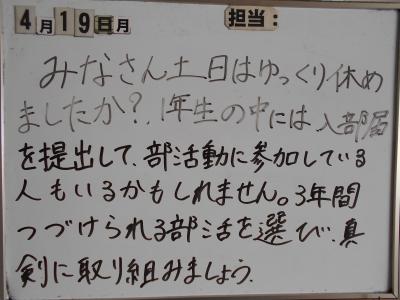 4月19日月 担当:
みなさん土日はゆっくり休め
ましたか?1年生の中には入部届
を提出して、部活動に参加している
人もいるかもしれません。3年間
つづけられる部活を選び、真
剣に取り組みましょう。